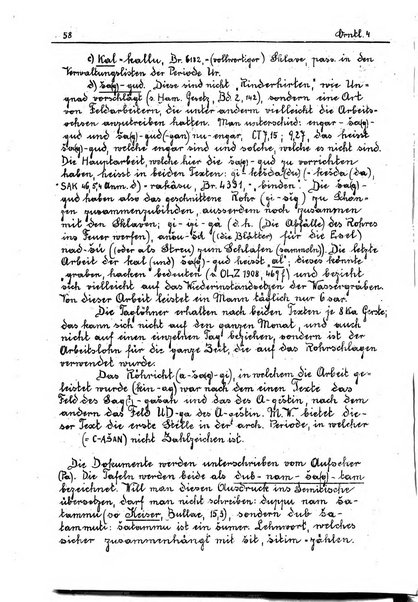 58 Orntl. 4
c) Kal-kallu, Br. 6182, -(vollwertiger) Sklave, pass. in den
Verwaltungslisten der Periode Ur.
d) šag-gud. Diese sind nicht "Rinderhirten," wie Un-
gnad vorschlägt (s. Ham. Gesetz, Bd. 2, 142), sondern eine Art
von Feldarbeitern, die unter anderem vielleicht die Arbeits-
ochsen anzutreiben hatten. Man unterschied: engar-šag-
gud und šag-gud(-gan) nu-engar, CT 7, 15; 9, 27, das heisst
solche, welche engar sind und solche, welche es nicht sind.
Die Hauptarbeit, welche hier die šag-gud zu verrichten
haben, heisst in beiden Texten: gi-kešda(du) (-kešda (da),
SAK 46, 5, 4 Anm. d) - rakāsu, Br. 4331, - "binden". Die šag-
gud haben also das geschnittene Rohr (gi-sig) zu Schän-
gen zusammenzubinden, ausserdem noch zusammen
mit den Sklaven; gi (d.h. (Die Abfälle) des Rohres
ins Feuer werfen), (die (Blätter) für die Esel)
(oder als Streu) zum Schlafen (sammeln)). Die letzte
Arbeit der kal (und) šag-gud heisst "al"; dieses könnte
"graben, hacken" bedeuten (s. OLZ 1908, 469 f) und bezieht
sich vielleicht auf das Wiederinstandsetzen der Wassergräben.
Von dieser Arbeit leistet ein Mann täglich nur 6 sar.
Die Taglöhner erhalten nach beiden Texten je 8 Ka Gerste;
das kann sich nicht auf den ganzen Monat, und auch
nicht auf einen einzelnen Tag beziehen, sondern ist der
Arbeitslohn für die ganze Zeit, die auf das Rohrschlagen
verwendet wurde.
Das Röhricht (a-šag-gi), in welchem die Arbeit ge-
leistet wurde (kin-ag) war nach dem einen Texte das
Feld des und des A-geštin, nach dem
andern das Feld UD-ga des A-geštin. M. W. bietet die-
ser Text die erste Stelle in der arch. Periode, in welcher
(= C-AŠAN) nicht Zahlzeichen ist.
Die Dokumente werden unterschrieben vom Aufseher
(Pa). Die Tafeln werden beide als dub-nam-šag-tam
bezeichnet. Will man diesen Ausdruck ins Semitische
übersetzen, darf man nicht schreiben: duppu nam ša-
tammu (so Keiser, Bullae, 15, 3), sondern dub ša-
tammuti: šatammu ist ein sumer. Lehnwort, welches
sicher zusammenhängt mit šit, šitim - zählen.